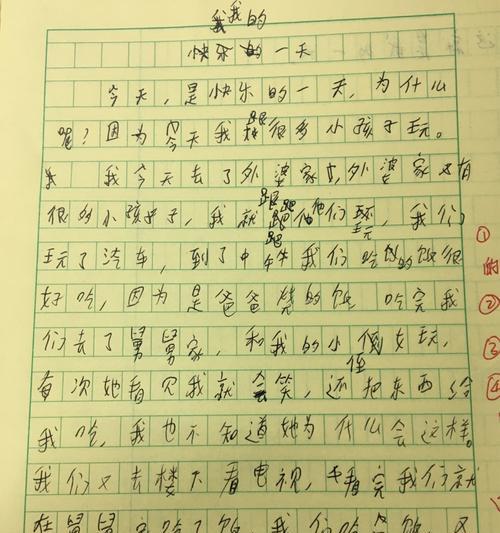 我的
快乐的一天
今天，是快乐的一天，为什么
呢？因为今天我跟很多小孩子玩。
我今天去了外婆家，外婆家又有
很多小孩子，我就跟他们玩，我们
玩了汽车，到了中午我们吃饭的饭很
好吃，因为是爸爸烧的饭 吃完我
们去了舅舅家，和我的小侄女玩，
每次她看见我就会笑，还把东西给
我吃，我也不知道她为什么会这样。
我们又去楼下看电视，看完我们就
在舅舅家吃了饭，我们吃完饭，又
①
的
②
③
④